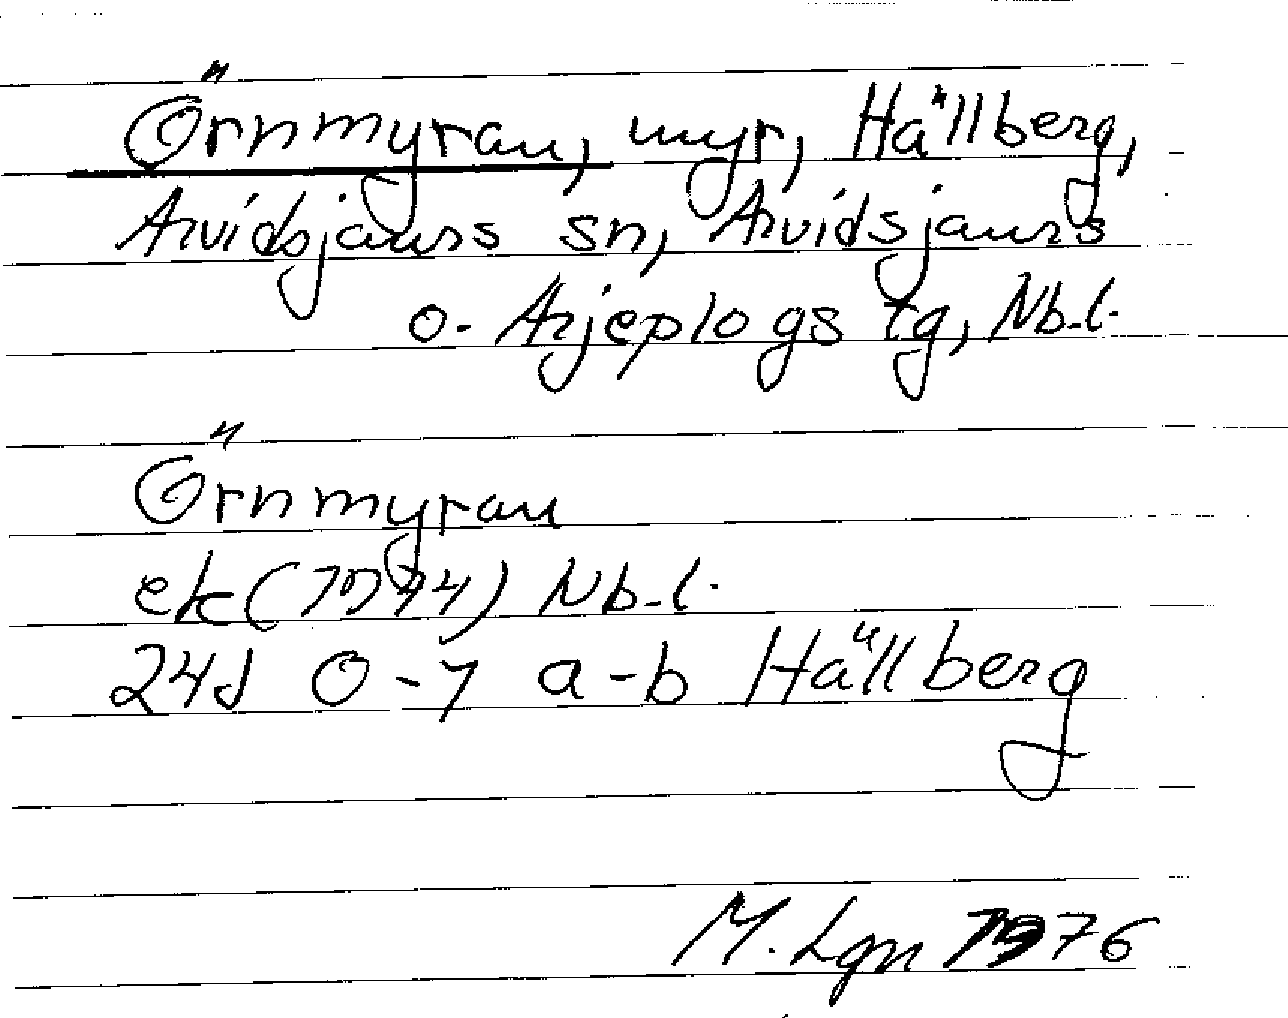 Örnmyran, myr, Hällberg,
Arvidsjaurs sn, Arvidsjaurs
o. Arjeplogs tg, Nb.l.
Örnmyran
ek (1974) Nb.l.
24J 0-1 a-b Hällberg
M. Lgn 1976